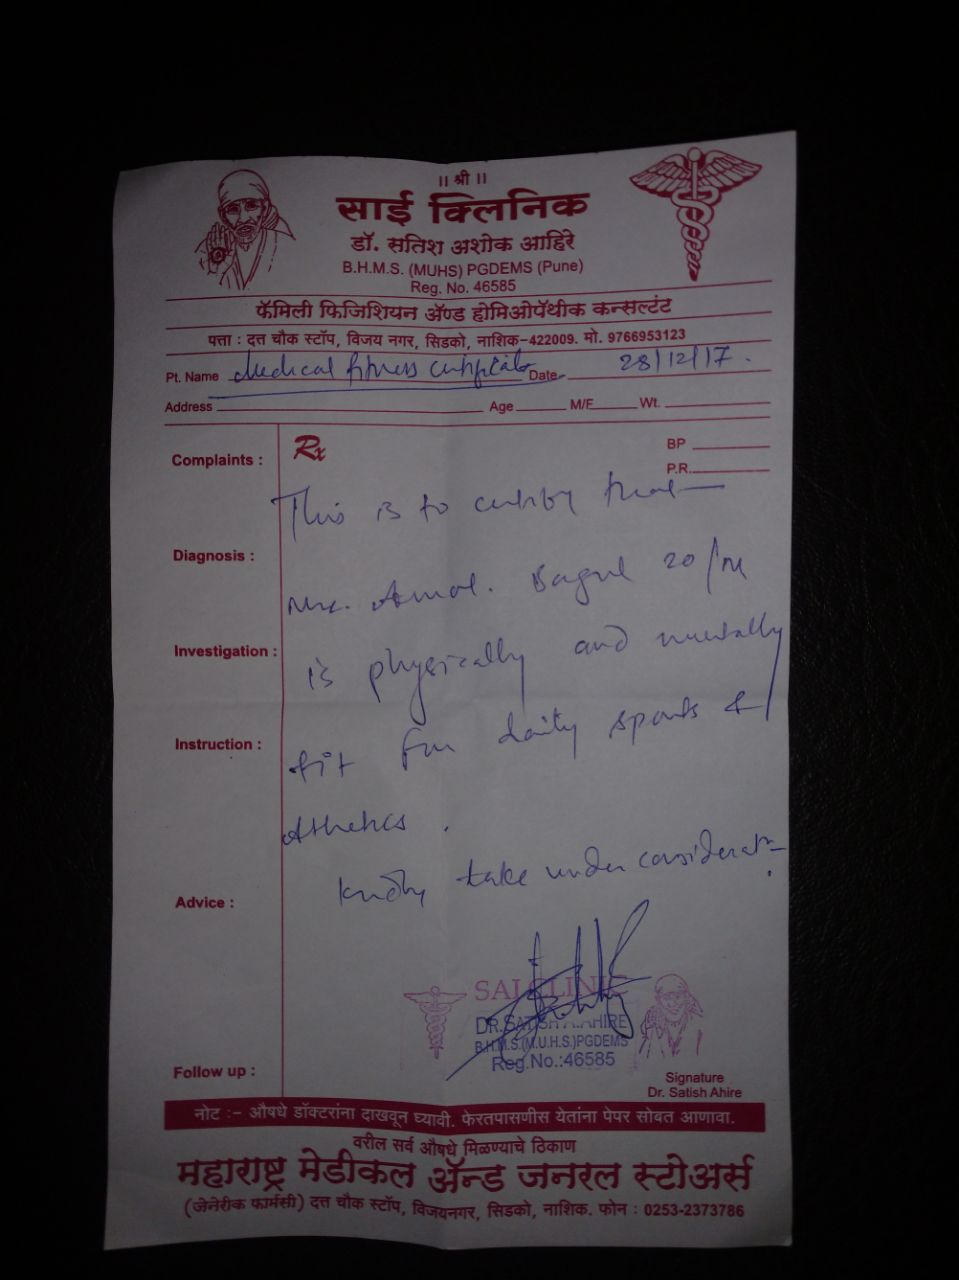 ॥ श्री ॥
साई क्लिनिक
डॉ. सतिश अशोक आहिरे
B.H.M.S. (MUHS) PGDEMS (Pune)
Reg. No. 46585
फॅमिली फिजिशियन ॲण्ड होमिओपॅथीक कन्सल्टंट
पत्ता : दत्त चौक स्टॉप, विजय नगर, सिडको, नाशिक-422009. मो. 9766953123
Pt. Name Medical fitness certificate Date 28/12/17.
Address Age M/F Wt.
Rx
BP
Complaints :
P.R.
This is to certify that
Diagnosis :
Mr. Amol. Bagul 20/M
Investigation :
is physically and mentally
Instruction :
fit for daily sports &
Athletics.
Kindly take under considerat-
Advice :
SAI CLINIC
DR.SATISH A.AHIRE
B.H.M.S.(M.U.H.S.)PGDEMS
Reg.No.:46585
Follow up :
Signature
Dr. Satish Ahire
नोट :- औषधे डॉक्टरांना दाखवून घ्यावी. फेरतपासणीस येतांना पेपर सोबत आणावा.
वरील सर्व औषधे मिळण्याचे ठिकाण
महाराष्ट्र मेडीकल ॲन्ड जनरल स्टोअर्स
(जेनेरीक फार्मसी) दत्त चौक स्टॉप, विजयनगर, सिडको, नाशिक. फोन : 0253-2373786